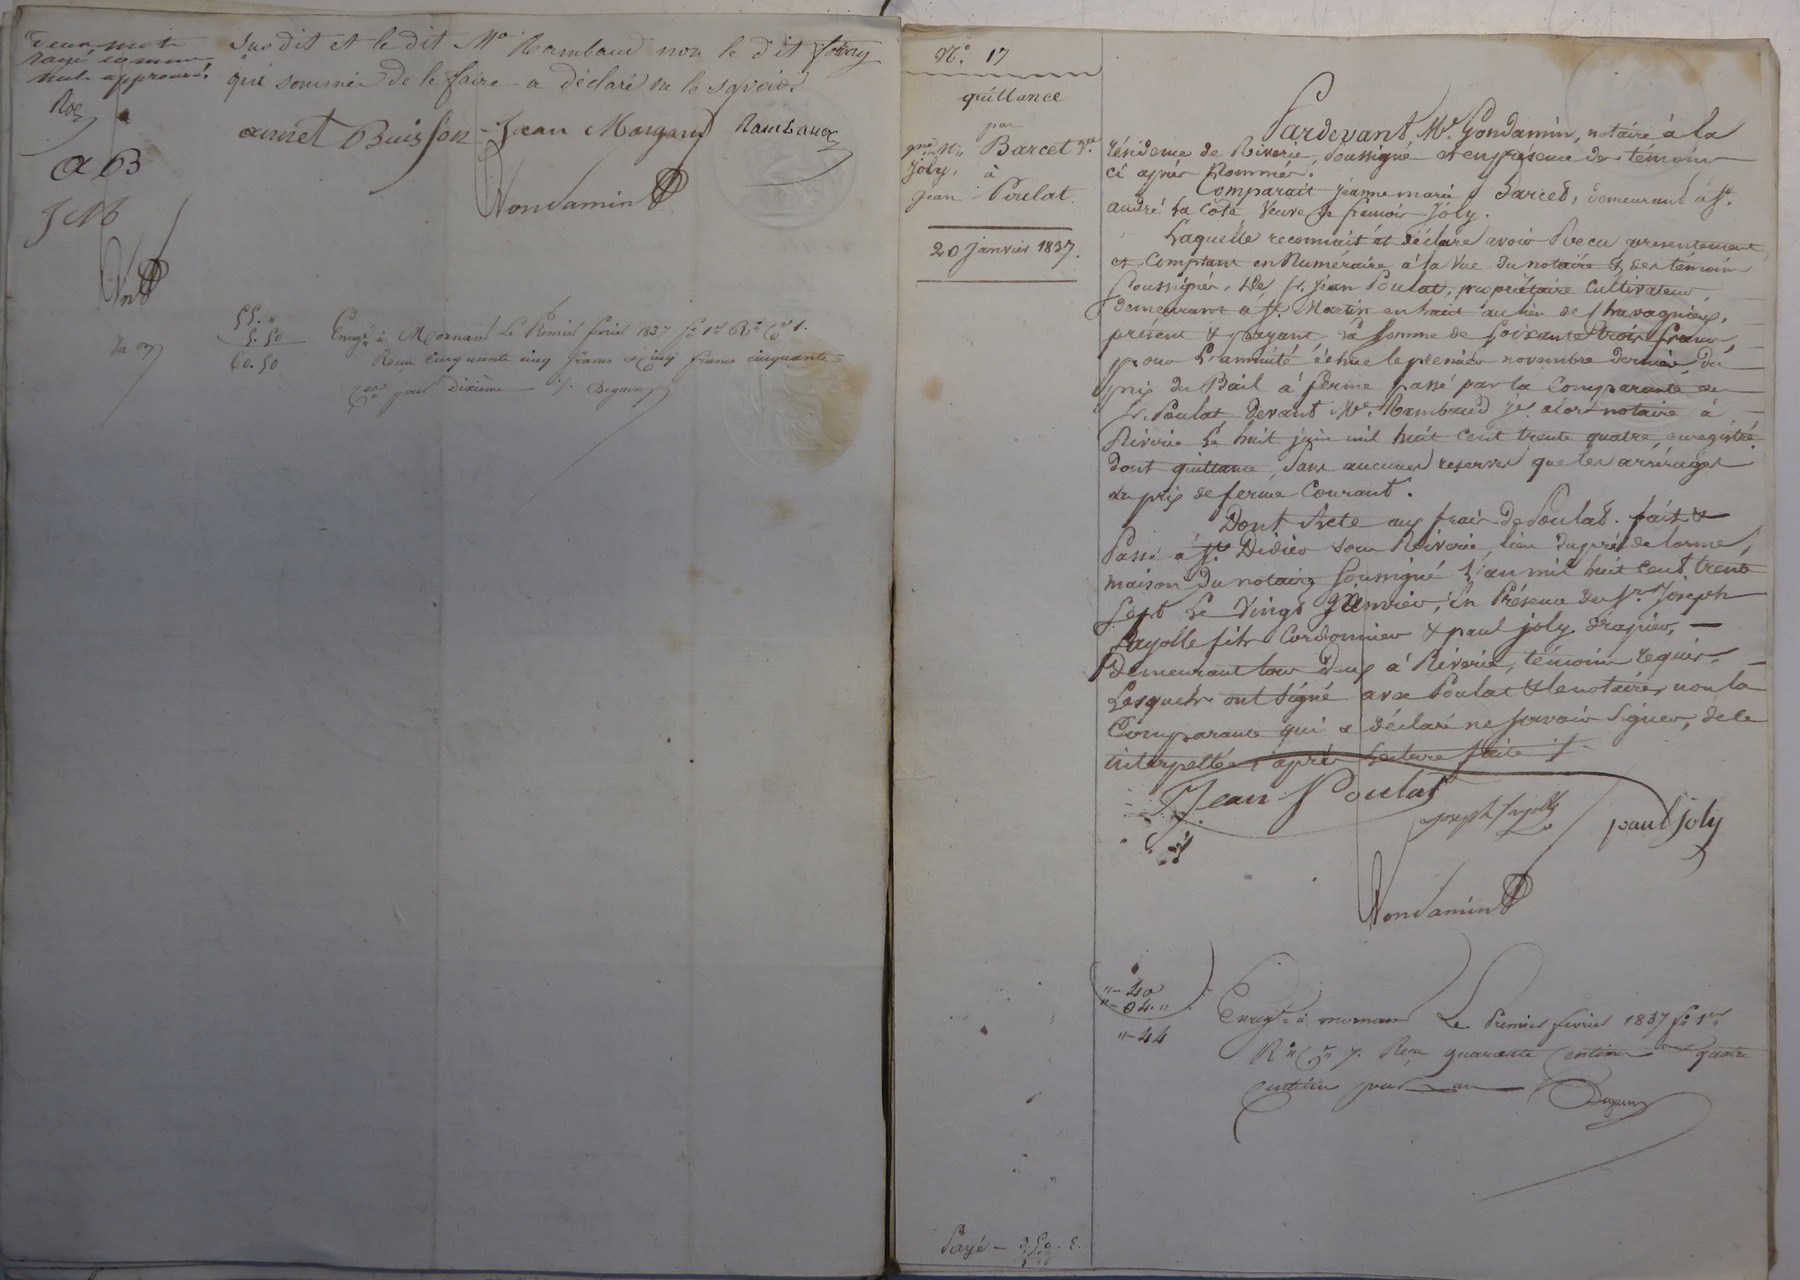 deux mots
rayé comme
nuls approuvé.
susdit et le dit Me Rambaud non le dit
qui sommé de le faire a déclaré ne le savoir
AB
JM
aunet Buisson Jean Rambaud
Gondamin
55. "
5. 50
60. 50
Enregt à Mornant Le Premier février 1837 fo 1er Ro Ce 1.
Reçu cinquante cinq francs & cinq francs cinquante
pour Dixième
No. 17
quittance
par
Barcet Ve
joly.
à
jean Poulat.
20 janvier 1837.
Pardevant Me Gondamin, notaire à la
résidence de Riverie, soussigné et en présence des témoins
ci après nommés.
Comparait jeanne marie Barcet, demeurant à st.
andré la cote veuve de francois joly.
Laquelle reconnait et déclare avoir recu presentement
et comptant en numéraire à la vue du notaire & des témoins
soussignés, de sr. jean Poulat, propriétaire cultivateur,
demeurant à st. Martin en haut au lieu de
présent & payant, la somme de soixante trois francs,
pour l'annuité échue le premier novembre dernier, du
prix du Bail à ferme passé par la comparante au
sr. Poulat devant Me. Rambaud je. alors notaire à
Riverie le huit juin mil huit cent trente quatre, enregistré.
dont quittance, sans aucunes reserves que les arrérages
du prix de ferme courant.
Dont Acte aux frais de Poulat. fait &
Passé à st. Didier sous Riverie, lieu du pré de lorme,
maison du notaire soussigné l'an mil huit cent trente
sept le vingt janvier, en Présence des srs. Joseph
fayolle fils cordonnier & paul joly drapier,
Demeurant tous deux à Riverie, témoins requis.
Lesquels ont signé avec Poulat & le notaire, non la
Comparante qui a déclaré ne savoir signer, de ce
interpellée, après lecture faite
Jean Poulat
joseph fayolle
paul joly
Gondamin
"- 40
"- 04. "
"- 44
Enregt à mornant Le Premier février 1837 fo 1er
Ro Ce 7. Reçu quarante centimes & quatre
centimes pour
Payé - 3